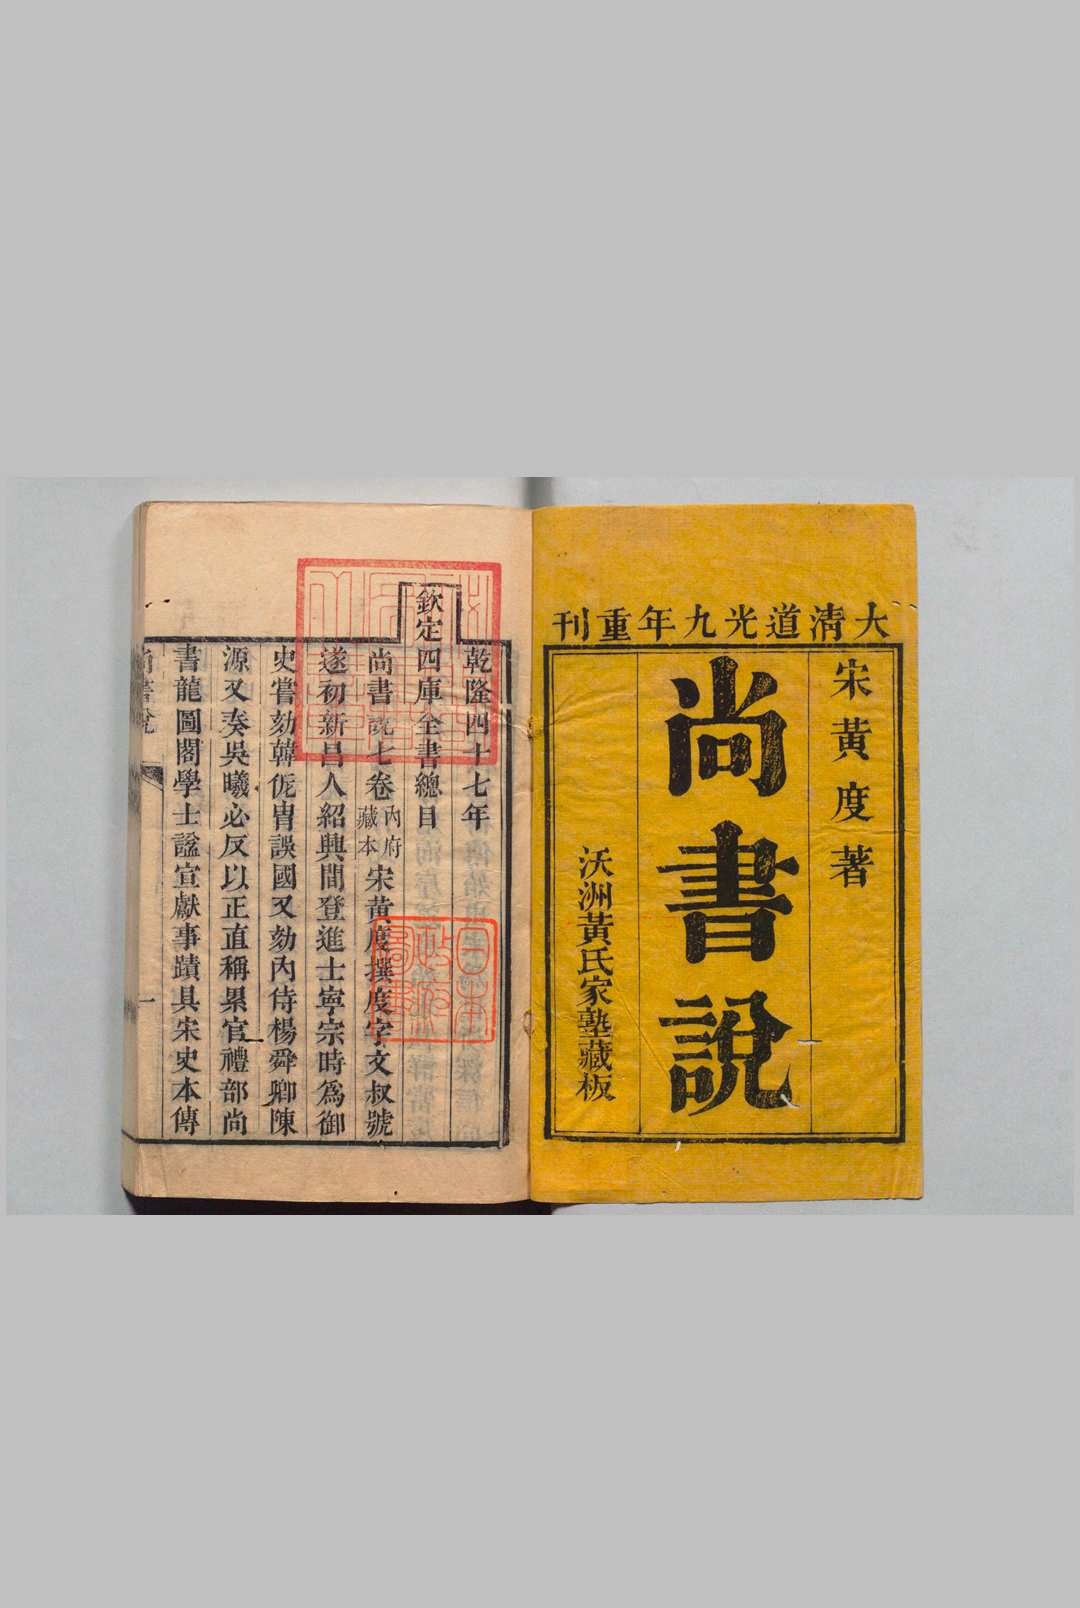 大清道光九年重刊
宋黃度著
尚書說
沃洲黃氏家塾藏板
乾隆四十七年
欽定四庫全書總目
尚書說七卷內府藏本宋黃度撰度字文叔號
遂初新昌人紹興間登進士寧宗時爲御
史嘗劾韓侂胄誤國又劾內侍楊舜卿陳
源又奏吳曦必反以正直稱累官禮部尚
書龍圖閣學士諡宣獻事蹟具宋史本傳
尚書說
一